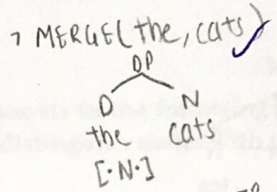 7 MERGE(the, cats)
DP
D N
the cats
[·N·]